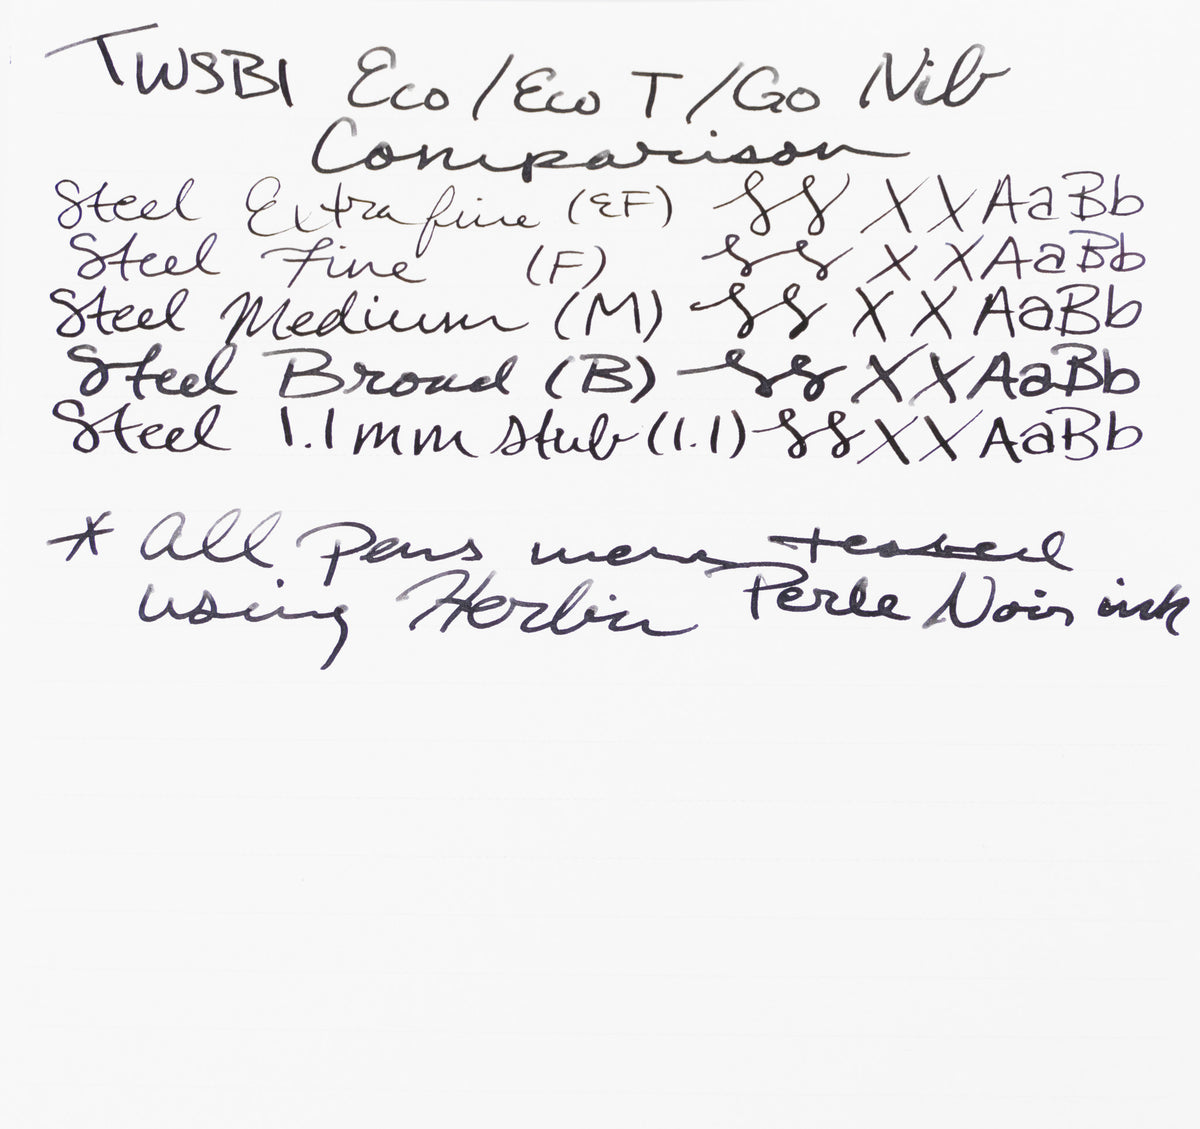 TWSBI Eco/Eco T/Go Nib
Comparison
Steel Extra fine (EF) SS XX AaBb
Steel Fine (F) SS XX AaBb
Steel Medium (M) SS XX AaBb
Steel Broad (B) SS XX AaBb
Steel 1.1mm Stub (1.1) SS XX AaBb
* All pens were tested
using Herbin Perle Noir ink